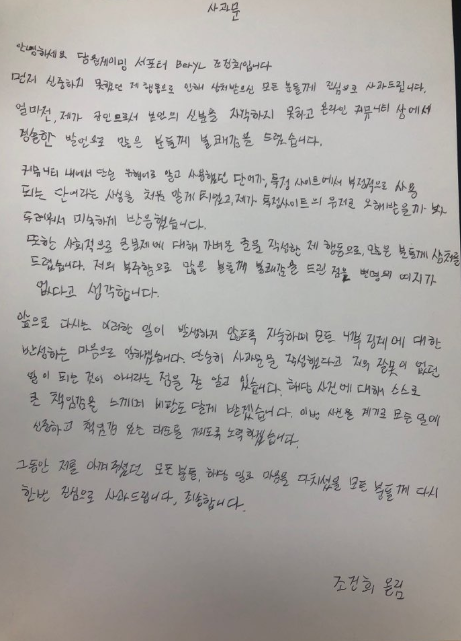 사과문
안녕하세요 담원게이밍 서포터 BeryL 조건희입니다
먼저 신중하지 못했던 제 행동으로 인해 상처받으신 모든 분들께 진심으로 사과드립니다.
얼마전, 제가 공인으로서 본인의 신분을 자각하지 못하고 온라인 커뮤니티 상에서
경솔한 발언으로 많은 분들께 불쾌감을 드렸습니다.
커뮤니티 내에서 단순 유행어로 알고 사용했던 단어가, 특정 사이트에서 부정적으로 사용
되는 단어라는 사실을 처음 알게 되었고, 제가 특정사이트의 유저로 오해받을까 봐
두려워서 미숙하게 반응했습니다.
또한 사회적으로 큰 문제에 대해 가벼운 글을 작성한 제 행동으로, 많은 분들께 상처를
드렸습니다. 저의 부주함으로 많은 분들께 불쾌감을 드린 점은 변명의 여지가
없다고 생각합니다.
앞으로 다시는 이러한 일이 발생하지 않도록 자숙하며 모든 내적 문제에 대한
반성하는 마음으로 임하겠습니다. 단순히 사과문을 작성했다고 저의 잘못이 없던
일이 되는 것이 아니라는 점을 잘 알고 있습니다. 해당 사건에 대해 스스로
큰 책임감을 느끼며 비판도 달게 받겠습니다. 이번 사건을 계기로 모든 일에
신중하고 책임감 있는 태도를 가지도록 노력하겠습니다.
그동안 저를 아껴주셨던 모든분들, 해당 일로 마음을 다치셨을 모든 분들께 다시
한번 진심으로 사과드립니다, 죄송합니다.
조건희 올림